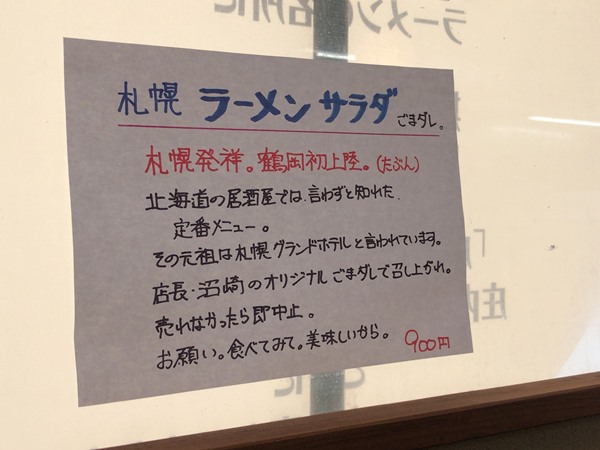 札幌 ラーメンサラダ ごまダレ。
札幌発祥。鶴岡初上陸。(たぶん)
北海道の居酒屋では、言わずと知れた、
定番メニュー。
その元祖は札幌グランドホテルと言われています。
店長・沼崎のオリジナルごまダレで召し上がれ。
売れなかったら即中止。
お願い。食べてみて。美味しいから。 900円